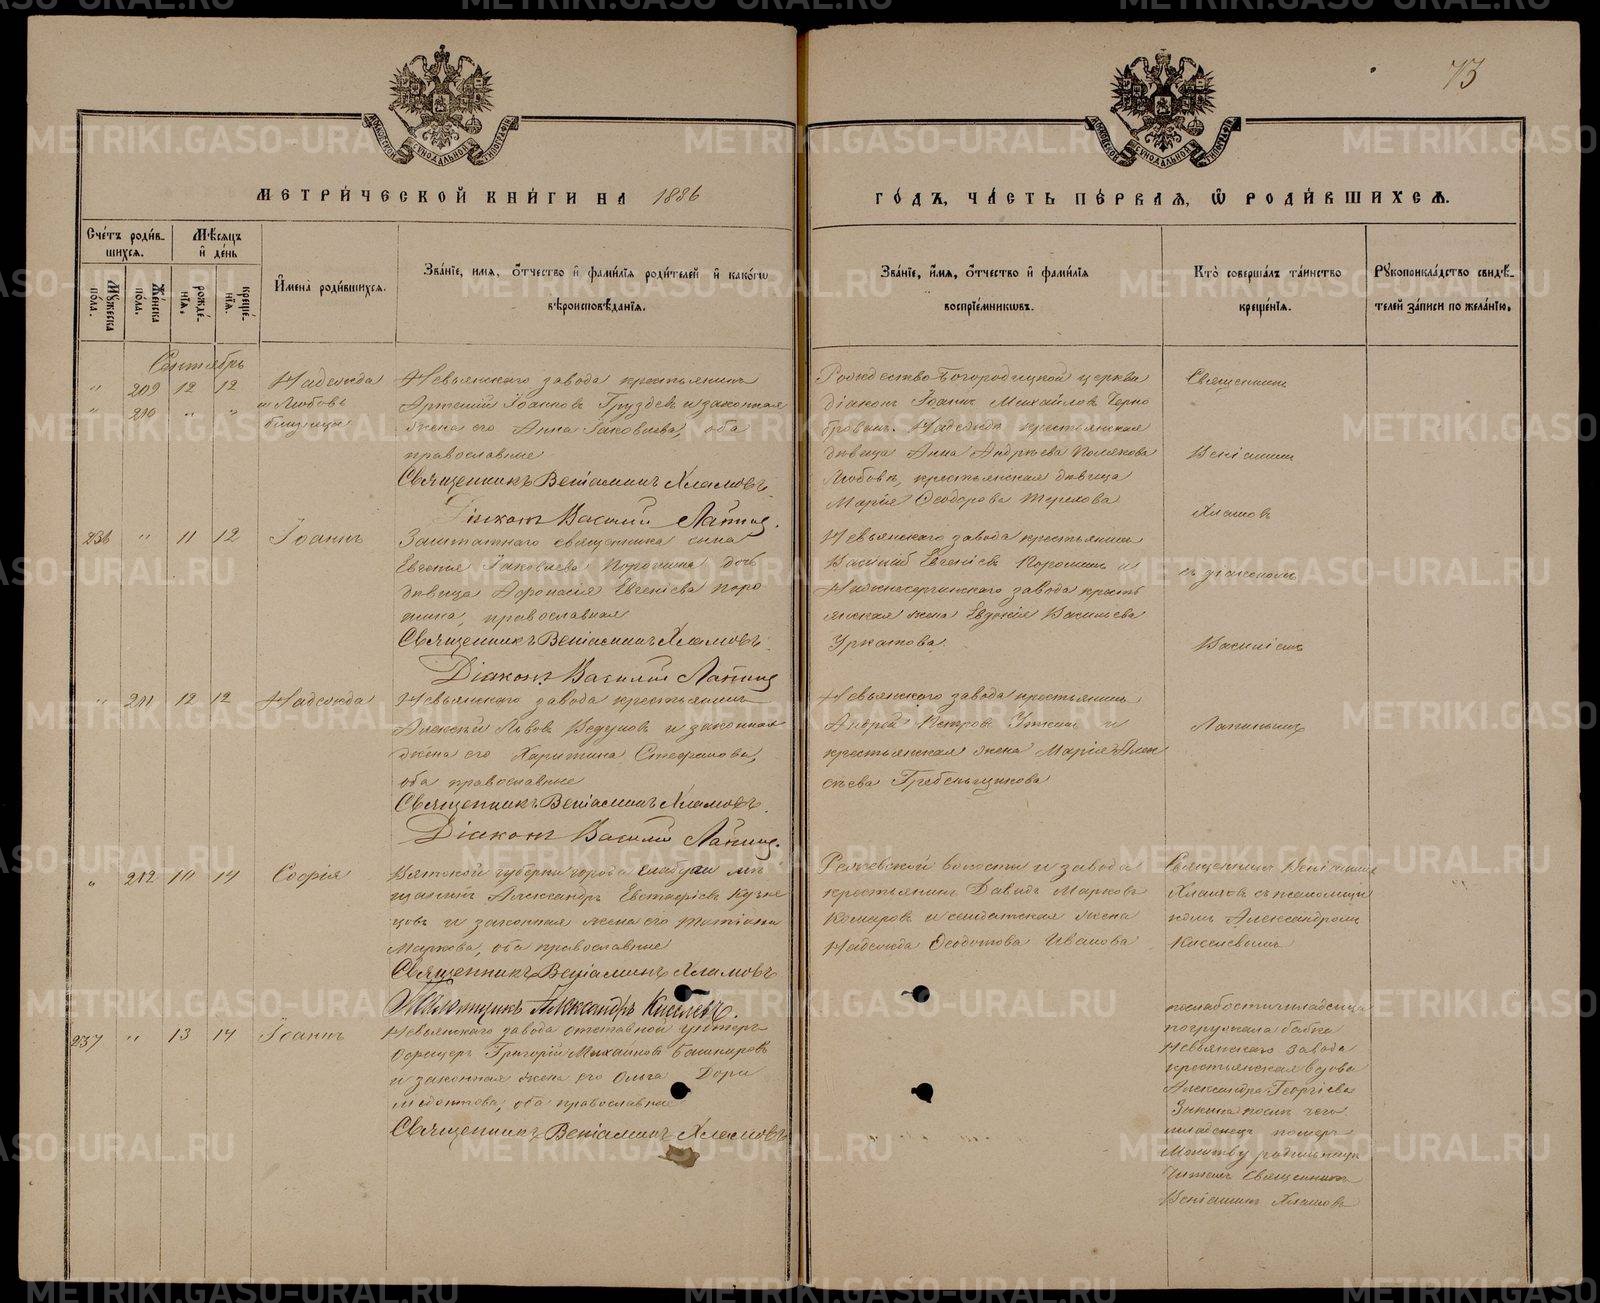 73
МЕТРИЧЕСКОЙ КНИГИ НА 1886
ГОДЪ, ЧАСТЬ ПЕРВАЯ, Ѡ РОДИВШИХСЯ.
Счетъ родив-
шихся.
Мужеска пола.
Женска пола.
Мѣсяцъ
и день
рожде-
нія.
креще-
нія.
Имена родившихся.
Званіе, имя, отчество и фамилія родителей и какогѡ
вѣроисповѣданія.
Званіе, имя, отчество и фамилія
воспріемникѡвъ.
Кто совершалъ таинство
крещенія.
Рукоприкладство свидѣ-
телей записи по желанію.
Сентябрь
" 209 12 12 Надежда
" 210 " " и Любовь
близнецы
Невьянскаго завода крестьянинъ
Артемій Іоанновъ Груздевъ и законная
жена его Анна Іаковлева, оба
православные
Священникъ Веніаминъ Хламовъ
Діаконъ Василій Лапинъ.
Рождество-Богородицкой церкви
діаконъ Іоаннъ Михайловъ Черно
бровинъ. Надежда крестьянская
дѣвица Анна Андреева Полякова
Любовь, крестьянская дѣвица
Марія Ѳеодорова Терехова
Священникъ
Веніаминъ
Хламовъ
съ діакономъ
Василіемъ
Лапинымъ
236 " 11 12 Іоаннъ
Заштатнаго священника сына
Евгенія Іаковлева Порошина дочь
дѣвица Афонасія Евгеніева Поро
шина, православная
Священникъ Веніаминъ Хламовъ
Діаконъ Василій Лапинъ
Невьянскаго завода крестьянинъ
Василій Евгеніевъ Порошинъ и
Нижнесергинскаго завода кресть
янская жена Евдокія Васильева
" 211 12 12 Надежда
Невьянскаго завода крестьянинъ
Алексѣй Львовъ Ведуновъ и законная
жена его Харитина Стефанова,
оба православные
Священникъ Веніаминъ Хламовъ.
Діаконъ Василій Лапинъ.
Невьянскаго завода крестьянинъ
Андрей Петровъ Уткинъ и
крестьянская жена Марія Алек
сѣева Гребенщикова
" 212 14 Софія
Вятской губерніи города Елабуги мѣ
щанинъ Александръ Евстафіевъ Кузне
цовъ и законная жена его Татіана
Маркова, оба православные
Священникъ Веніаминъ Хламовъ
Псаломщикъ Александръ Киселевъ.
Режевской волости и завода
крестьянинъ Давидъ Марковъ
Комаровъ и солдатская жена
Надежда Ѳеодотова Иванова
Священникъ Веніаминъ
Хламовъ съ псаломщи
комъ Александромъ
Киселевымъ
237 " 13 14 Іоаннъ
Невьянскаго завода отставной унтеръ
офицеръ Григорій Михайловъ Башкировъ
и законная жена его Ольга Дори
медонтова, оба православные
Священникъ Веніаминъ Хламовъ
по слабости младенца
погружала бабка
Невьянскаго завода
крестьянская вдова
Александра Георгіева
Зыкина послѣ чего
младенецъ померъ
Молитву родильницѣ
читалъ Священникъ
Веніаминъ Хламовъ
METRIKI.GASO-URAL.RU